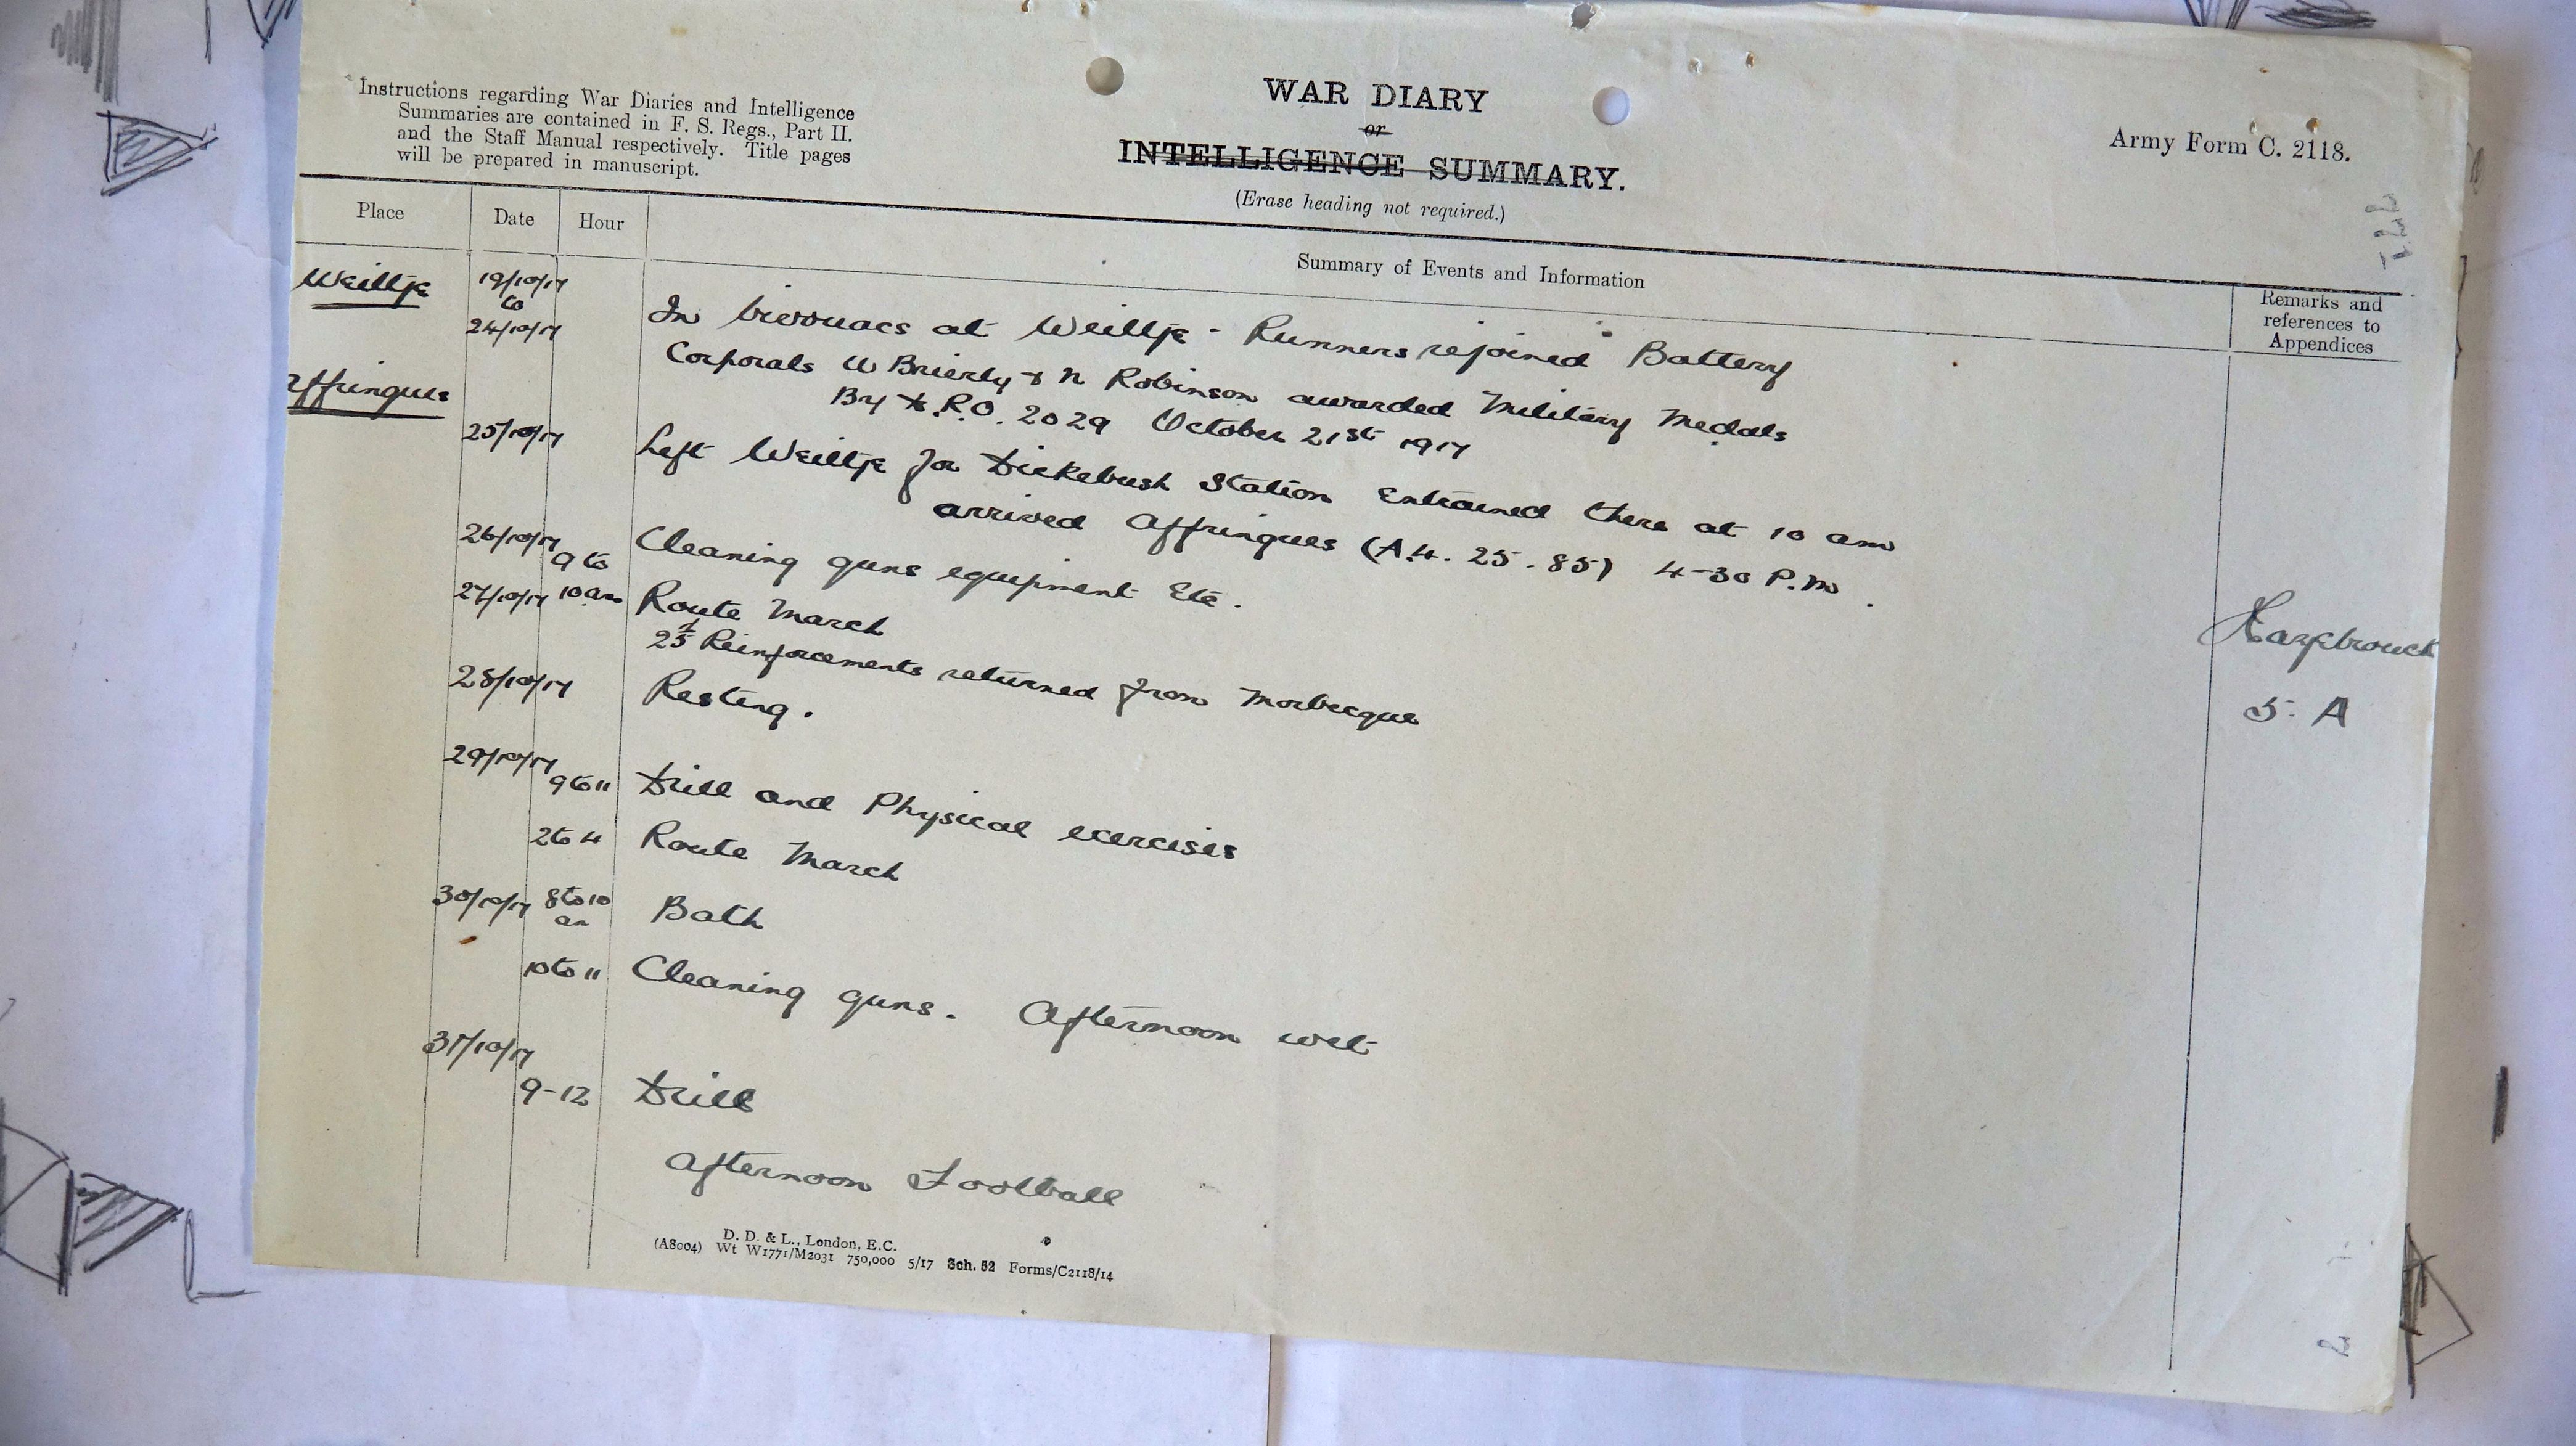 Instructions regarding War Diaries and Intelligence
Summaries are contained in F. S. Regs., Part II.
and the Staff Manual respectively. Title pages
will be prepared in manuscript.
WAR DIARY
or
INTELLIGENCE SUMMARY.
(Erase heading not required.)
Army Form C. 2118.
Place
Date
Hour
Summary of Events and Information
Remarks and
references to
Appendices
Weiltje
19/10/17
to
24/10/17
In bivouacs at Weiltje - Runners rejoined Battery
Corporals W Brierly & N Robinson awarded Military Medals
By D.R.O. 2029 October 21st 1917
Affringues
25/10/17
Left Weiltje for Dickebush Station Entrained there at 10 am
arrived Affringues (A.4. 25. 85) 4-30 P.M.
Hazebrouck
5. A
26/10/17
Cleaning guns equipment Etc.
27/10/17 9 to 10 am
Route March
25 Reinforcements returned from Morbecque
28/10/17
Resting.
29/10/17
9 to 11 Drill and Physical exercises
2 to 4 Route March
30/10/17 8 to 10 am Bath
10 to 11 Cleaning guns. Afternoon wet
31/10/17
9-12 Drill
Afternoon Football
D. D. & L., London, E.C.
(A8004) Wt W1771/M2031 750,000 5/17 Sch. 52 Forms/C2118/14